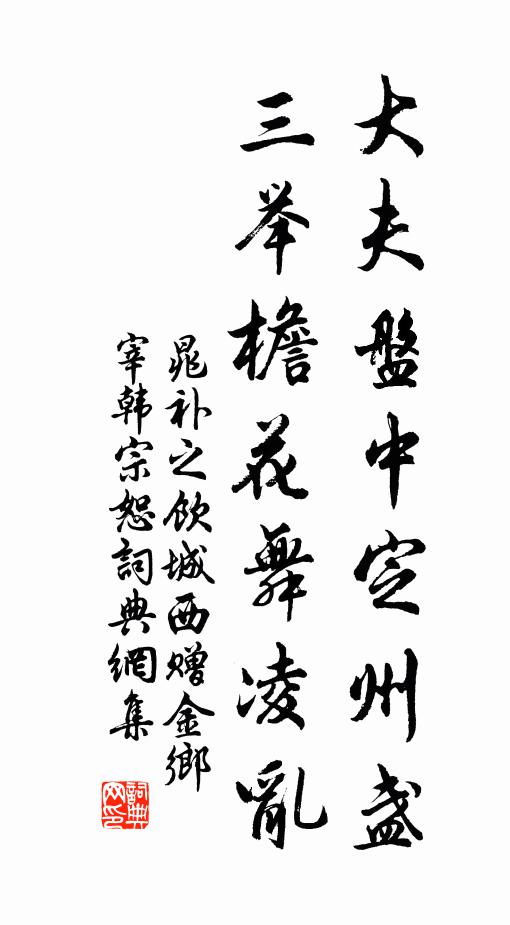 大夫盤中定州盏
三举檐花舞凌亂
晁补之饮城西赠金鄉
宰韩宗恕詞典網集
詞典网印